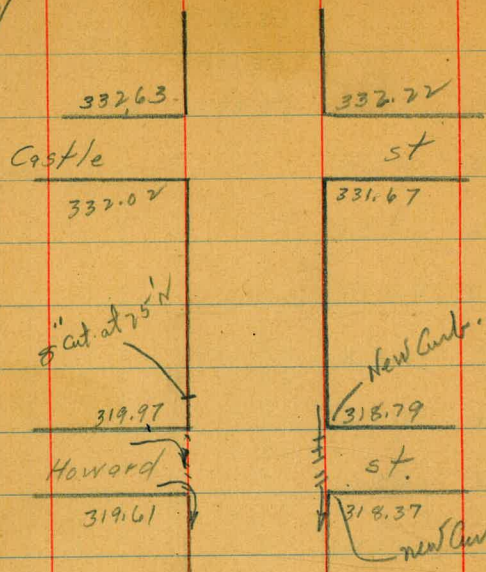 332.63 332.22
Castle st
332.02 331.67
8" cut at 25'N
New Curb.
319.97 318.79
Howard st.
319.61 318.37
new Cur